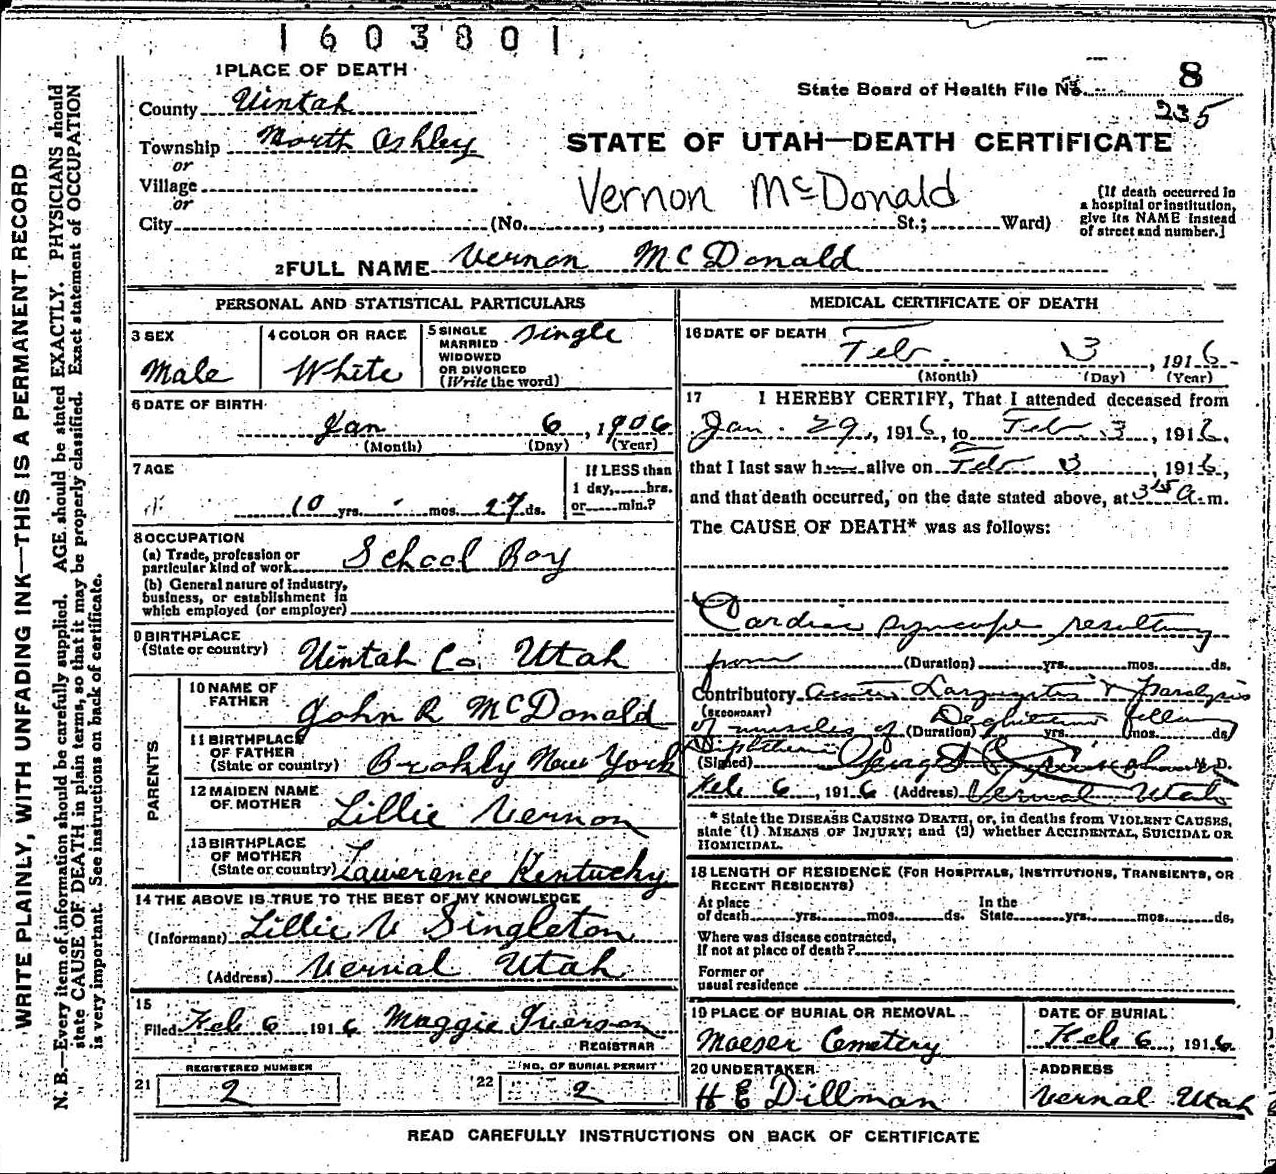 1603801
1 PLACE OF DEATH
County Uintah
State Board of Health File No. 8
235
Township North Ashley
STATE OF UTAH—DEATH CERTIFICATE
or
Village
or
Vernon McDonald
City (No. , St.; Ward)
[If death occurred in
a hospital or institution,
give its NAME instead
of street and number.]
2 FULL NAME Vernon McDonald
PERSONAL AND STATISTICAL PARTICULARS
3 SEX
Male
4 COLOR OR RACE
White
5 SINGLE
MARRIED
WIDOWED
OR DIVORCED
(Write the word)
Single
6 DATE OF BIRTH
Jan 6, 1906
(Month) (Day) (Year)
7 AGE
10 yrs. mos. 27 ds.
If LESS than
1 day, hrs.
or min.?
8 OCCUPATION
(a) Trade, profession or
particular kind of work School Boy
(b) General nature of industry,
business, or establishment in
which employed (or employer)
9 BIRTHPLACE
(State or country) Uintah Co. Utah
PARENTS
10 NAME OF
FATHER John R McDonald
11 BIRTHPLACE
OF FATHER
(State or country) Brokly New York
12 MAIDEN NAME
OF MOTHER Lillie Vernon
13 BIRTHPLACE
OF MOTHER
(State or country) Lawerance Kentucky
14 THE ABOVE IS TRUE TO THE BEST OF MY KNOWLEDGE
(Informant) Lillie V Singleton
(Address) Vernal Utah
15
Filed Feb 6 1916 Maggie Iverson
REGISTRAR
REGISTERED NUMBER
21 2
NO. OF BURIAL PERMIT
22 2
MEDICAL CERTIFICATE OF DEATH
16 DATE OF DEATH
Feb 3, 1916
(Month) (Day) (Year)
17 I HEREBY CERTIFY, That I attended deceased from
Jan. 29, 1916, to Feb. 3, 1916,
that I last saw h alive on Feb 3, 1916,
and that death occurred, on the date stated above, at 3 15 a.m.
The CAUSE OF DEATH* was as follows:
Cardiac syncope resulting
from (Duration) yrs. mos. ds.
Contributory Laryngitis & paralysis
(SECONDARY)
of muscles of Deglutition following
(Duration) yrs. mos. ds.
Diphtheria
(Signed) M. D.
Feb 6, 1916 (Address) Vernal Utah
* State the DISEASE CAUSING DEATH, or, in deaths from VIOLENT CAUSES,
state (1) MEANS OF INJURY; and (2) whether ACCIDENTAL, SUICIDAL OR
HOMICIDAL.
18 LENGTH OF RESIDENCE (FOR HOSPITALS, INSTITUTIONS, TRANSIENTS, OR
RECENT RESIDENTS)
At place
of death yrs. mos. ds.
In the
State yrs. mos. ds.
Where was disease contracted,
If not at place of death?
Former or
usual residence
19 PLACE OF BURIAL OR REMOVAL
Maeser Cemetery
DATE OF BURIAL
Feb 6, 1916
20 UNDERTAKER
H E Dillman
ADDRESS
Vernal Utah
READ CAREFULLY INSTRUCTIONS ON BACK OF CERTIFICATE
WRITE PLAINLY, WITH UNFADING INK—THIS IS A PERMANENT RECORD
N. B.—Every item of information should be carefully supplied. AGE should be stated EXACTLY. PHYSICIANS should
state CAUSE OF DEATH in plain terms, so that it may be properly classified. Exact statement of OCCUPATION
is very important. See instructions on back of certificate.